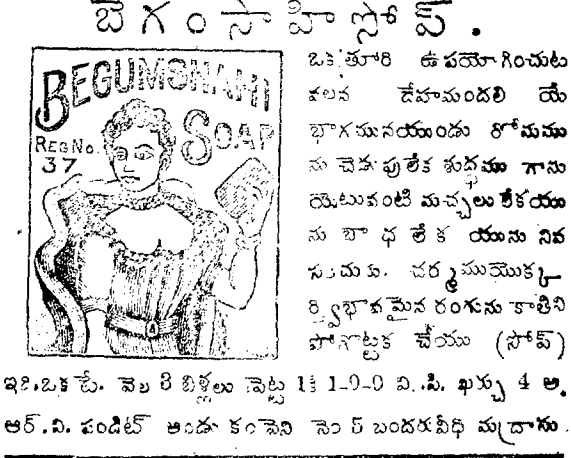 బేగంసాహిసోప్.
BEGUMSHAHI
SOAP
REG No.
37
ఒకతూరి ఉపయోగించుట
వలన దేహమందలి యే
భాగముననయుండు రోమము
ను చెడుపులేక శుద్ధము గాను
యెటువంటి మచ్చలు లేకయు
ను బాధ లేక యును నివ
చర్మముయొక్క
మైన రంగును కాతిని
పోగొట్టక చేయు (సోప్)
ఇది.ఒక పే. వెల 3 బిళ్లలు పెట్టె 1కి 1-0-0 వి. పి. ఖర్చు 4 అ.
ఆర్. వి. పండిట్ అండు కంపెని నెం బందరువీధి మద్రాసు.